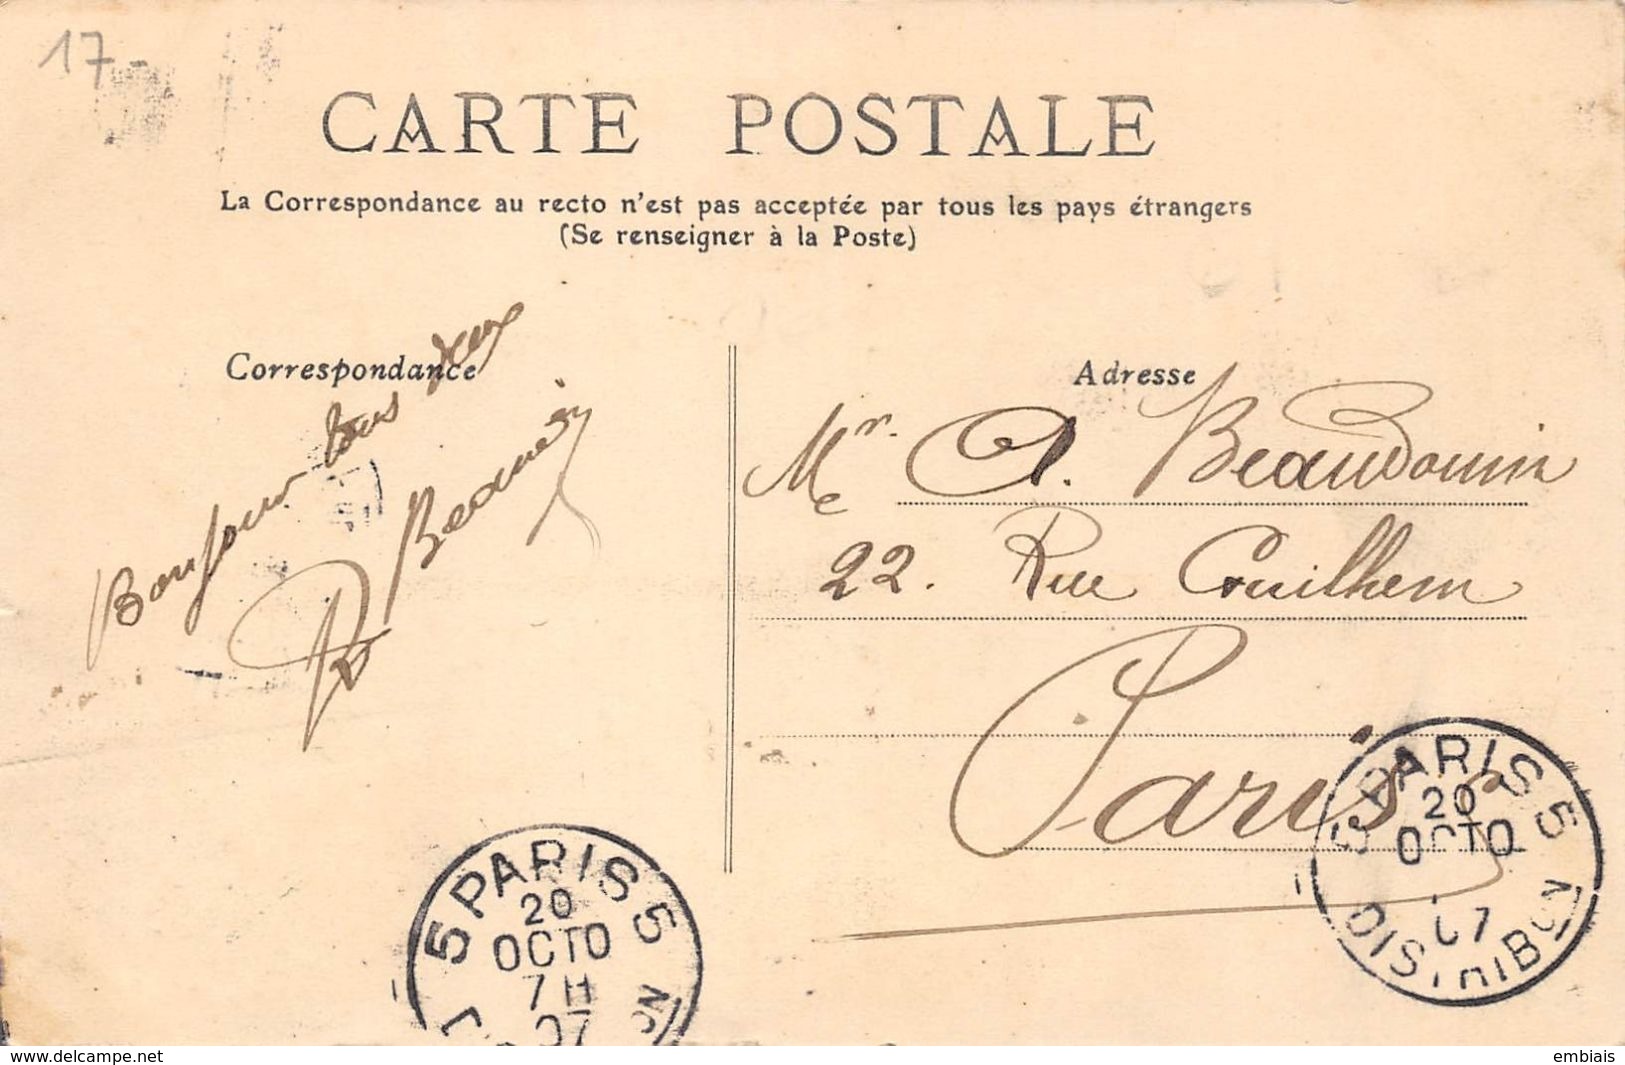 17-
CARTE POSTALE
La Correspondance au recto n'est pas acceptée par tous les pays étrangers
(Se renseigner à la Poste)
Correspondance
Bonjour tous deux
Adresse
Mr. A. Beaudouin
22. Rue Cruilhem
Paris
5 PARIS 5
20
OCTO
7H
07
5 PARIS 5
20
OCTO
07
DISTRIBUTION
delcampe.net
embiais